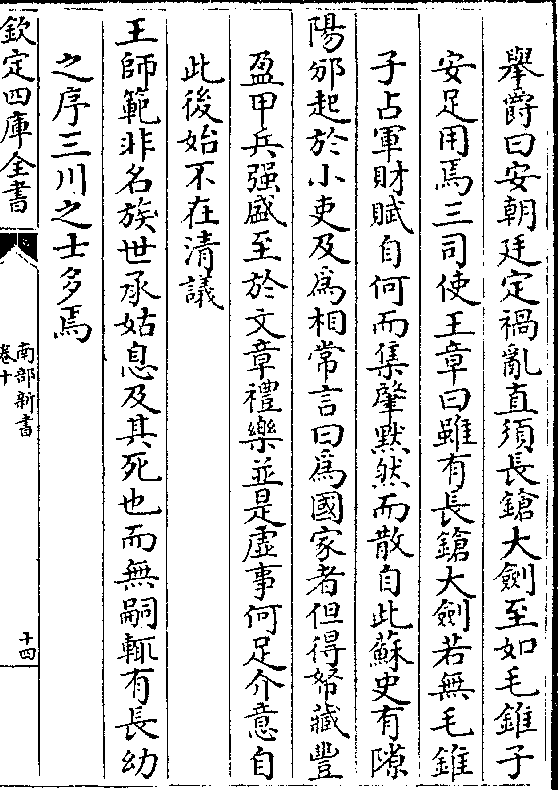 舉爵曰安朝廷定禍亂直須長鎗大劍至如毛錐子
安足用焉三司使王章曰雖有長鎗大劍若無毛錐
子占軍財賦自何而集肇默然而散自此蘇史有隙
陽邠起於小吏及爲相常言曰爲國家者但得帑藏豐
盈甲兵强盛至於文章禮樂並是虚事何足介意自
此後始不在清議
王師範非名族世承姑息及其死也而無嗣輒有長幼
之序三川之士多焉
欽定四庫全書
南部新書
卷十
十四